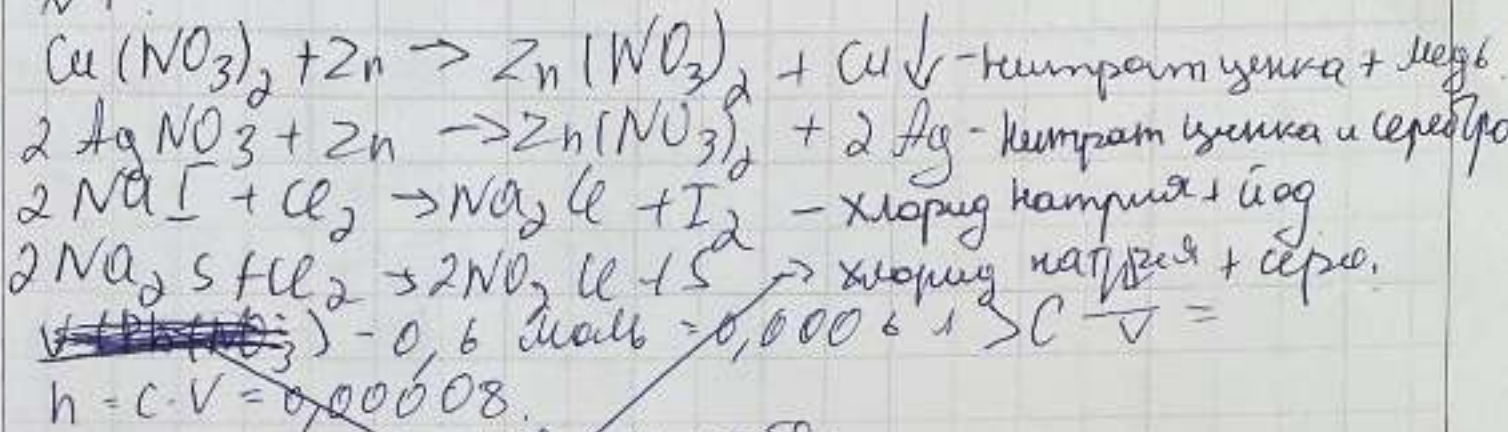 Cu(NO3)2 + Zn → Zn(NO3)2 + Cu↓ - нитрат цинка + медь
2 AgNO3 + Zn → Zn(NO3)2 + 2 Ag - нитрат цинка и серебро
2 NaI + Cl2 → Na2Cl + I2 - хлорид натрия + йод
2 Na2S + Cl2 → 2NO2Cl + S → хлорид натрия + сера.
- 0,6 моль = 0,0006 л > C V =
n = C·V = 0,00008.